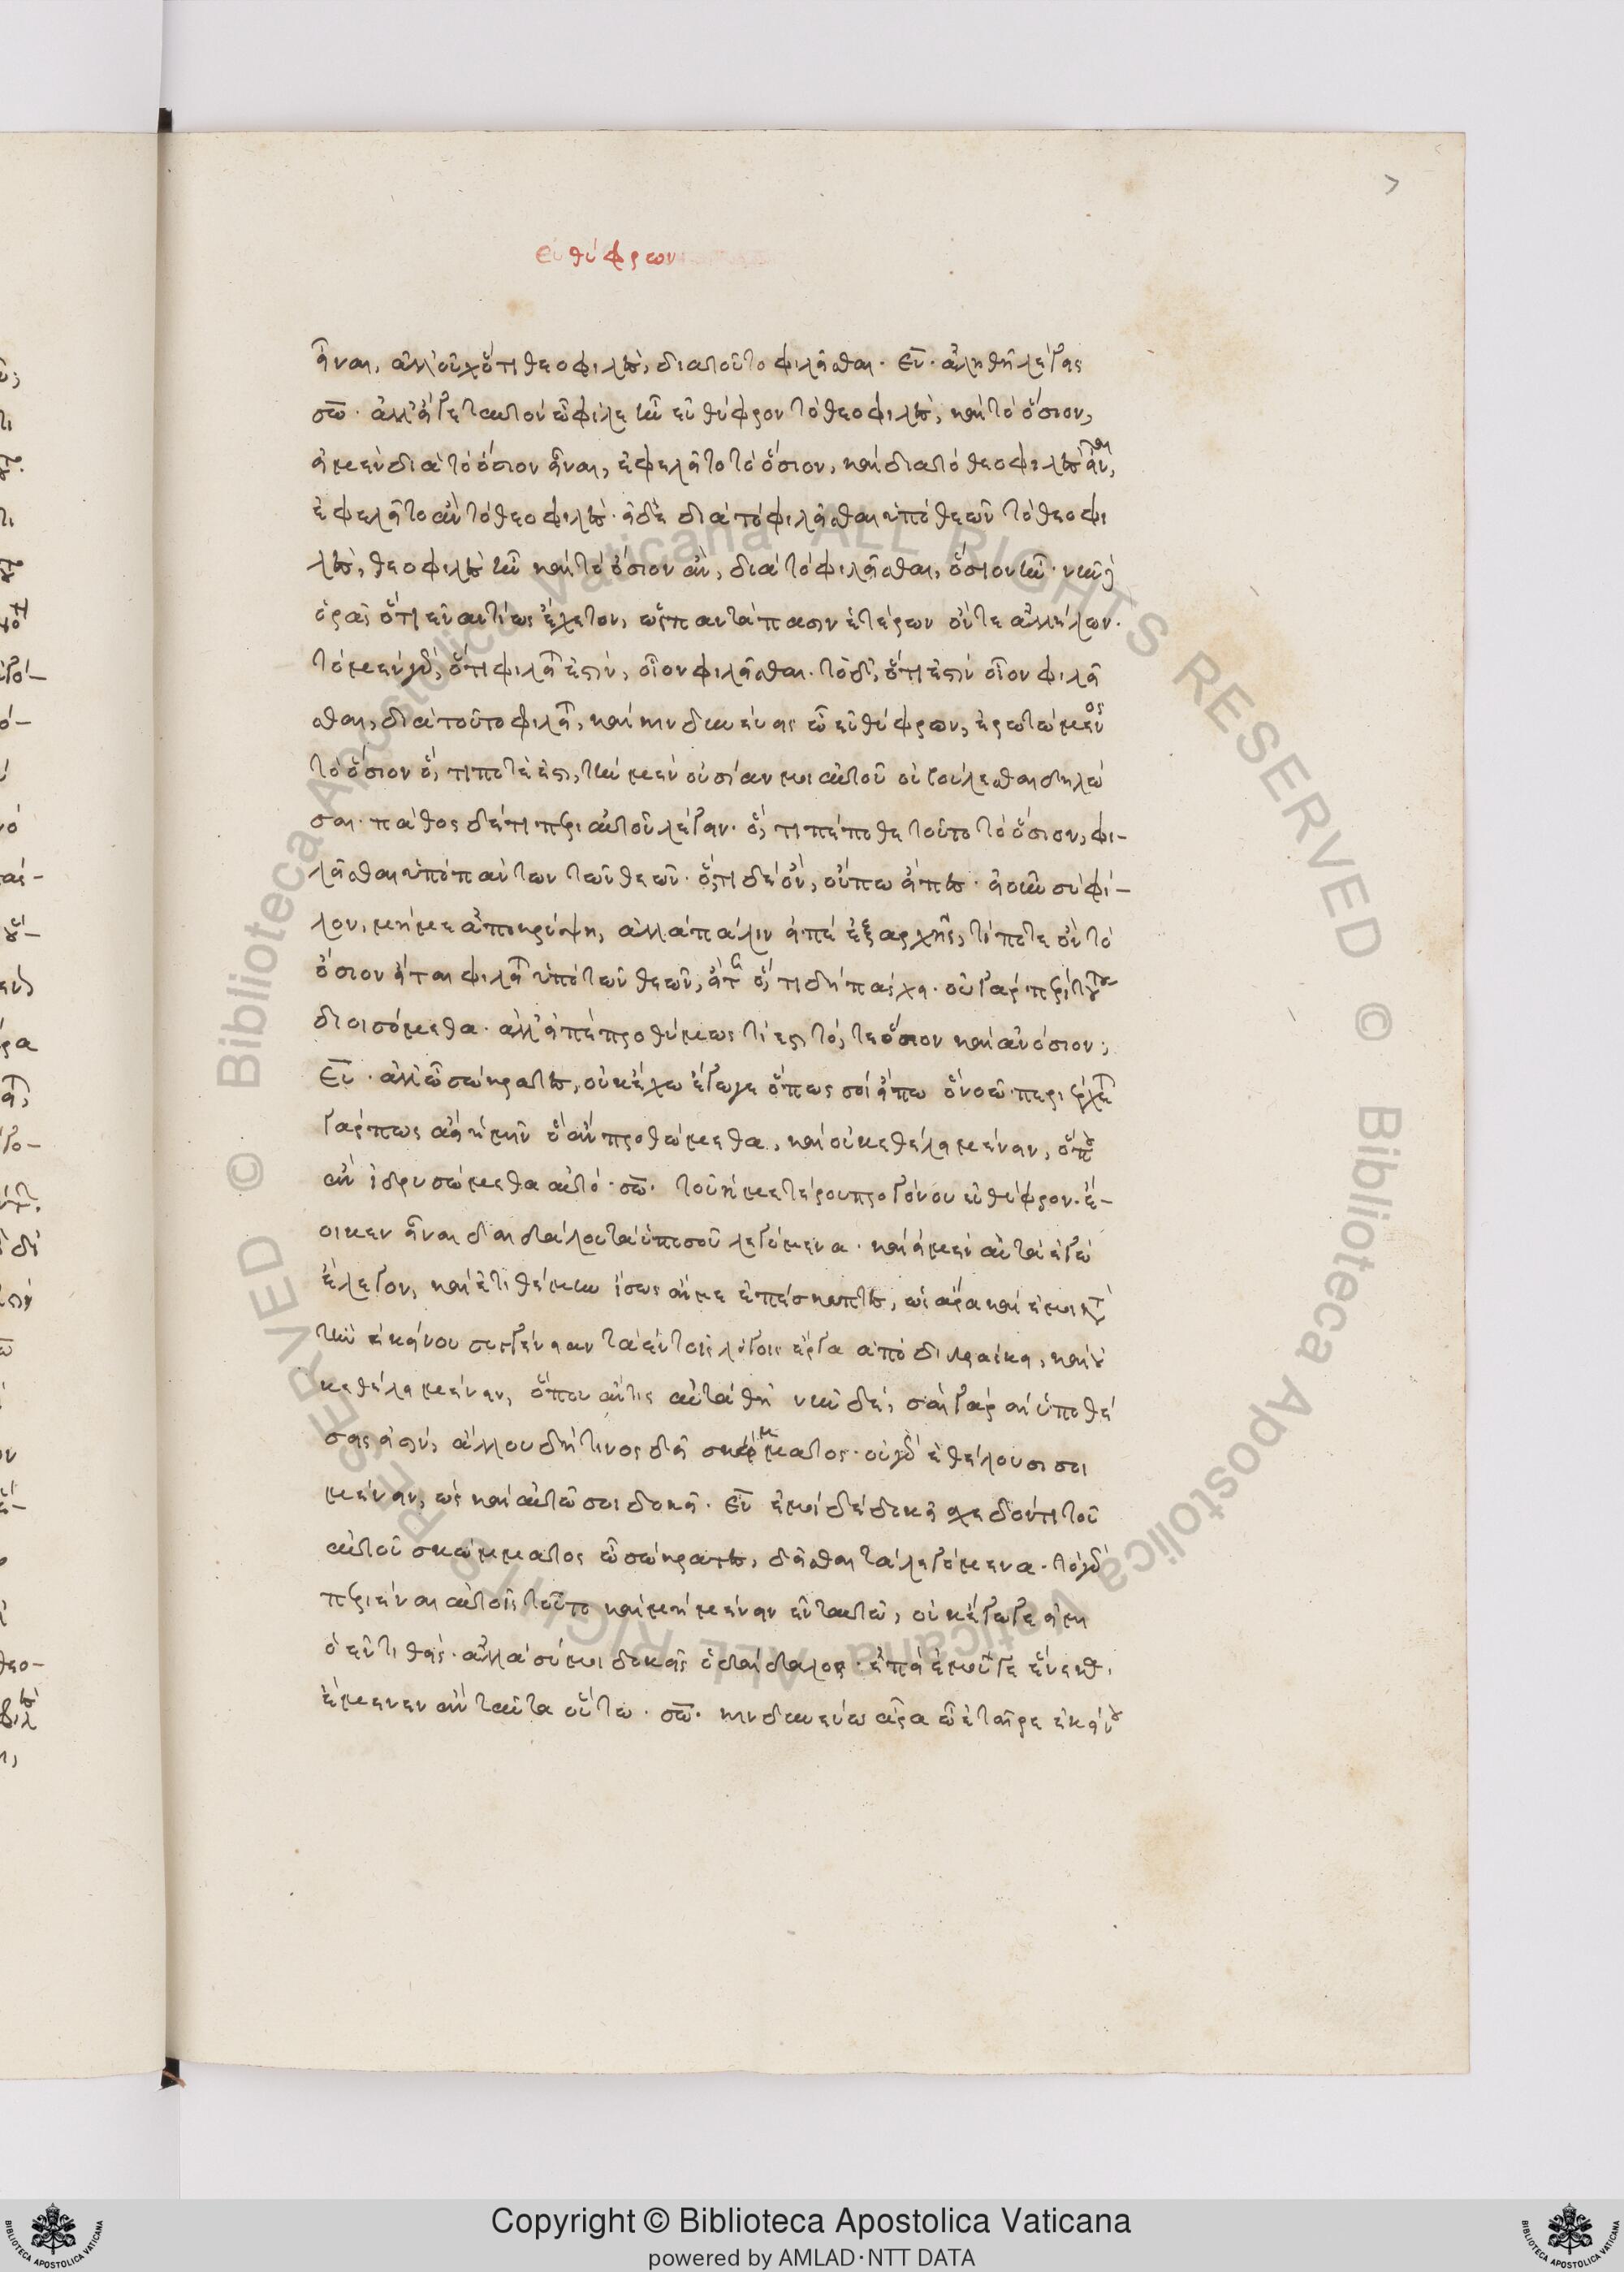 εὐθύφρων
εἶναι, ἀλλ' οὐχ ὅτι θεοφιλὲς, διατοῦτο φιλεῖσθαι. Εὐ. ἀληθῆ λέγεις
σω. ἀλλ' εἴγε ταυτὸν ὦ φίλε ἦν εὐθύφρον τὸ θεοφιλὲς, καὶ τὸ ὅσιον,
εἰ μὲν διὰ τὸ ὅσιον εἶναι, ἐφιλεῖτο τὸ ὅσιον, καὶ διατὸ θεοφιλὲς εἶναι,
ἐφιλεῖτο ἂν τὸ θεοφιλές. εἰ δὲ διὰ τὸ φιλεῖσθαι ὑπὸ θεῶν τὸ θεοφι
λὲς, θεοφιλὲς ἦν καὶ τὸ ὅσιον ἂν, διὰ τὸ φιλεῖσθαι, ὅσιον ἦν. νῦν δὲ
ὁρᾷς ὅτι ἐναντίως ἔχετον, ὡς παντάπασιν ἑτέρω ὄντε ἀλλήλων.
τὸ μὲν γὰρ, ὅτι φιλεῖται ἐστὶν, οἷον φιλεῖσθαι. τὸ δ', ὅτι ἐστὶν οἷον φιλεῖ
σθαι, διὰ τοῦτο φιλεῖται, καὶ κινδυνεύεις ὦ εὐθύφρων, ἐρωτώμενος
τὸ ὅσιον ὅ,τι ποτέ ἐστι, τὴν μὲν οὐσίαν μοι αὐτοῦ οὐ βούλεσθαι δηλῶ
σαι. πάθος δέ τι περὶ αὐτοῦ λέγειν. ὅ,τι πέπονθε τοῦτο τὸ ὅσιον, φι-
λεῖσθαι ὑπὸ πάντων τῶν θεῶν. ὅ,τι δὲ ὂν, οὔπω εἶπες. εἰ οὖν σὺ φί-
λον, μή με ἀποκρύψῃ, ἀλλὰ πάλιν εἰπὲ ἐξαρχῆς, τί ποτε ὂν τὸ
ὅσιον εἴται φιλεῖται ὑπὸ τῶν θεῶν, εἴτε ὅ,τι δὴ πάσχει. οὐ γὰρ περὶ τούτου
διοισόμεθα. ἀλλ' εἰπὲ προθύμως τί ἐστι τό,τε ὅσιον καὶ ἀνόσιον;
Εὐ. ἀλλ' ὦ σώκρατες, οὐκ ἔχω ἔγωγε ὅπως σοὶ εἴπω ὃ νοῶ. περιέρχεται
γάρ πως ἀεὶ ἡμῖν ὃ ἂν προθώμεθα, καὶ οὐκ ἐθέλει μένειν, ὅπου
ἂν ἱδρυσώμεθα αὐτό. σω. τοῦ ἡμετέρου προγόνου εὐθύφρον. ἔ-
οικεν εἶναι δαιδάλου τὰ ὑπὸ σοῦ λεγόμενα. καὶ εἰ μὲν αὐτὰ ἐγὼ
ἔλεγον, καὶ ἐτιθέμην ἴσως ἄν με ἐπέσκωπτες, ὡς ἄρα καὶ ἐμοὶ κατὰ
τὴν ἐκείνου συγγένειαν τὰ ἐν τοῖς λόγοις ἔργα ἀποδιδράσκει, καὶ οὐ
κ ἐθέλει μένειν, ὅπου ἄν τις αὐτὰ θῇ νῦν δὲ, σαὶ γὰρ αἱ ὑποθέ
σεις εἰσίν, ἄλλου δή τινος δεῖ σκώμματος. οὐ γὰρ ἐθέλουσι σοι
μένειν, ὡς καὶ αὐτῷ σοι δοκεῖ. Εὐ ἐμοὶ δὲ δοκεῖ σχεδόν τι τοῦ
αὐτοῦ σκώμματος ὦ σώκρατες, δεῖσθαι τὰ λεγόμενα. τὸ γὰρ
περιιέναι αὐτοῖς τοῦτο καὶ μὴ μένειν ἐν ταυτῷ, οὐκ ἔγωγε εἰμι
ὁ ἐντιθείς. ἀλλὰ σύ μοι δοκεῖς ὁ δαίδαλος. ἐπεὶ ἐμοῦ γε ἕνεκα.
ἔμενεν ἂν ταῦτα οὕτω. σω. κινδυνεύω ἄρα ὦ ἑταῖρε ἐκείνου